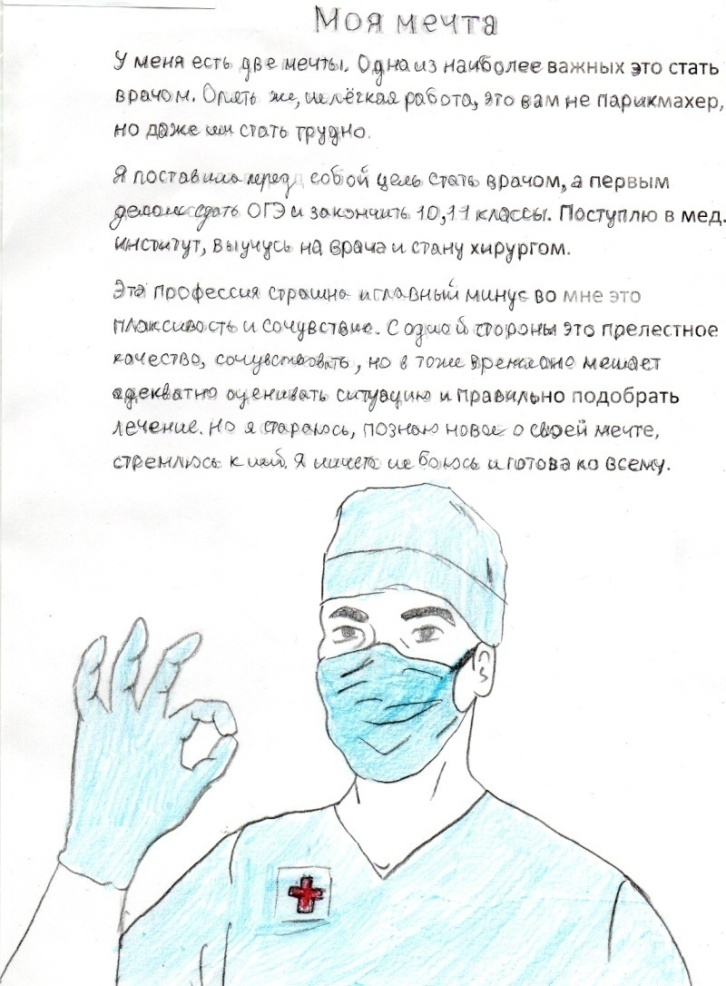 Моя мечта
У меня есть две мечты. Одна из наиболее важных это стать
врачом. Опять же, нелёгкая работа, это вам не парикмахер,
но даже им стать трудно.
Я поставила перед собой цель стать врачом, а первым
делом сдать ОГЭ и закончить 10,11 классы. Поступлю в мед.
институт, выучусь на врача и стану хирургом.
Эта профессия страшна и главный минус во мне это
плаксивость и сочувствие. С одной стороны это прелестное
качество, сочувствовать, но в тоже время оно мешает
адекватно оценивать ситуацию и правильно подобрать
лечение. Но я стараюсь, познаю новое о своей мечте,
стремлюсь к ней. Я ничего не боюсь и готова ко всему.